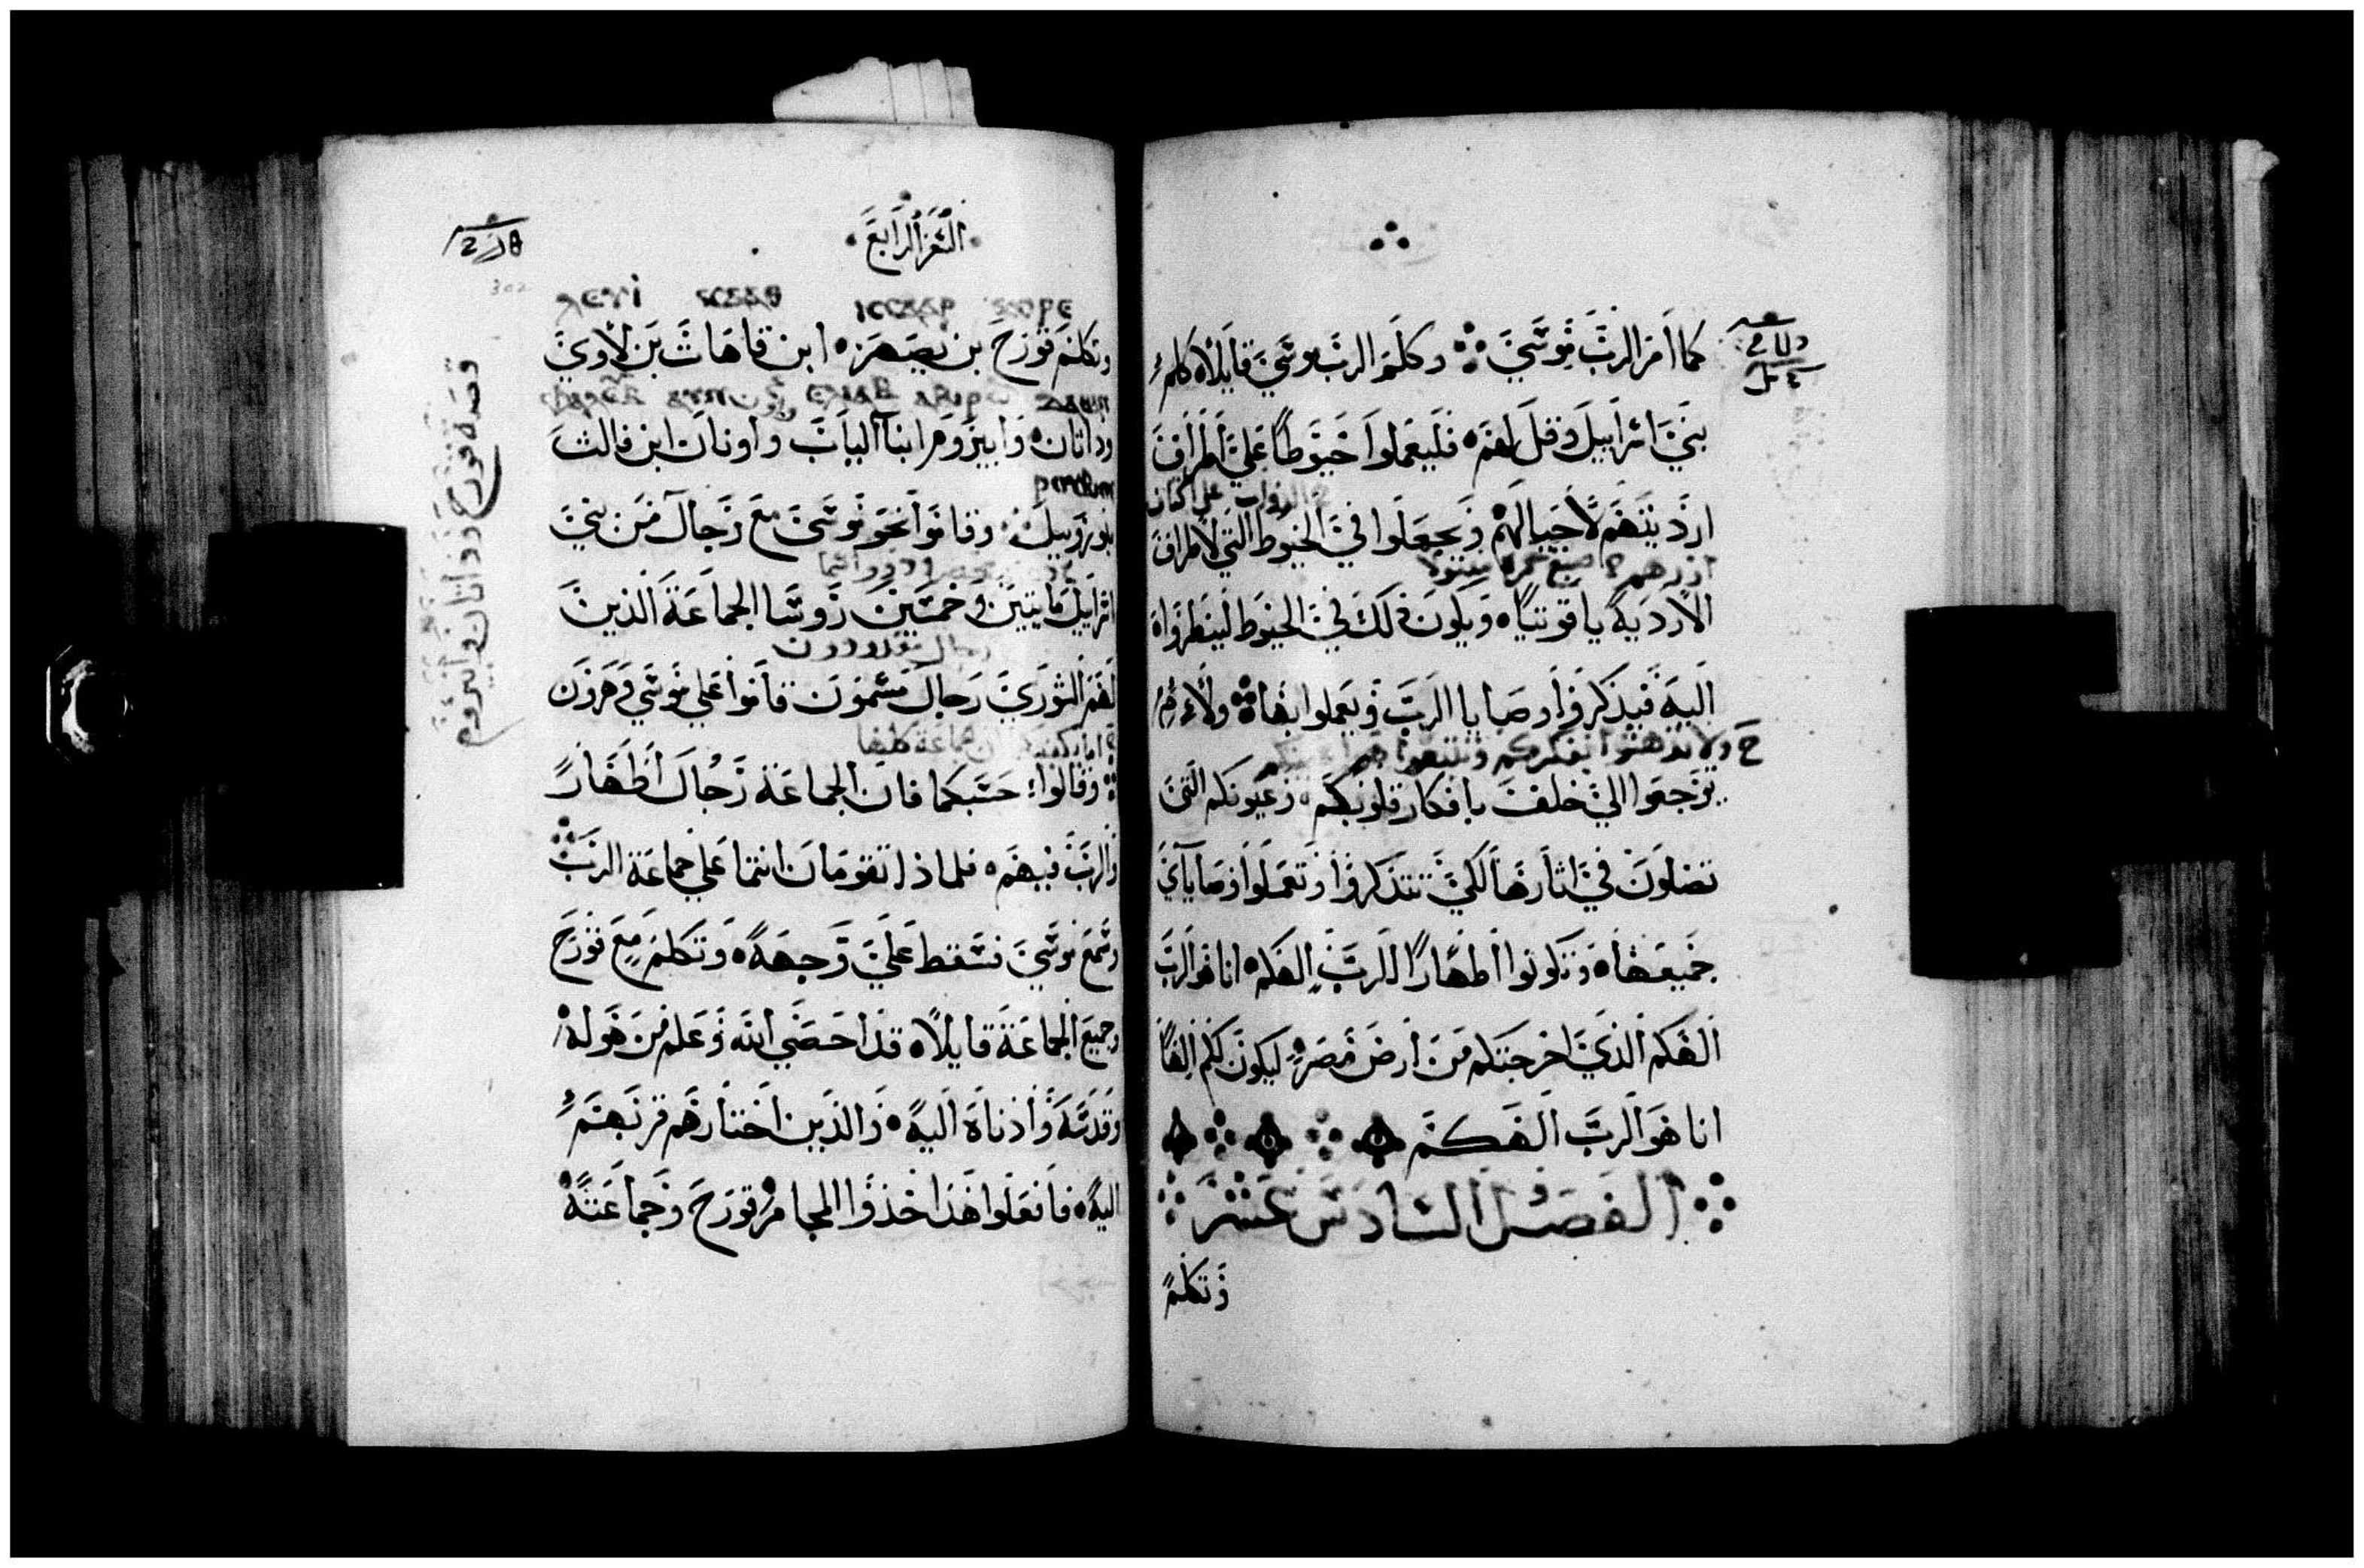 كما امر الرب موسي وكلم الرب موسي قايلاه كلم
بني اسراييل وقل لهم فليعملوا خيوطا علي اطراف
ارديتهم لاجيالهم ويجعلوا في الخيوط التي لاطراف
الارديه ياقوتيا ويكون ذلك في الخيوط لينظروا
اليه فيذكروا وصايا الرب ويعملوا بها ولا
يرجعوا الي خلف بافكار قلوبكم وعيونكم التي
تضلون في اثارها لكي تتذكروا وتعملوا وصاياي
جميعها وتكونوا اطهارا للرب الهكم انا هو الرب
الهكم الذي اخرجتكم من ارض مصر ليكون لكم الها
انا هو الرب الهكم
الفصل السادس عشر
وتكلم
السفر الرابع
302
وتكلم قورح بن يصهر ابن قاهاث بن لاوي
وداثان وابيروم ابنا الياب واونان ابن فالث
بن روبيل وقاموا نحو موسي مع رجال من بني
اسراييل مايتين وخمسين روسا الجماعة الذين
لهم الشوري رجال مسمون قاموا علي موسي وهرون
وقالوا حسبكما فان الجماعة رجال اطهار
والرب فيهم فلماذا تقومان انتما علي جماعة الرب
وسمع موسي فسقط علي وجهه وتكلم مع قورح
وجميع الجماعة قايلاه قد احصي الله وعلم من هو له
وقدسه وادناه اليه والذين اختارهم قربهم
اليه فافعلوا هذا خذوا المجامر قورح وجماعته
قصة قورح وداثان وابيروم